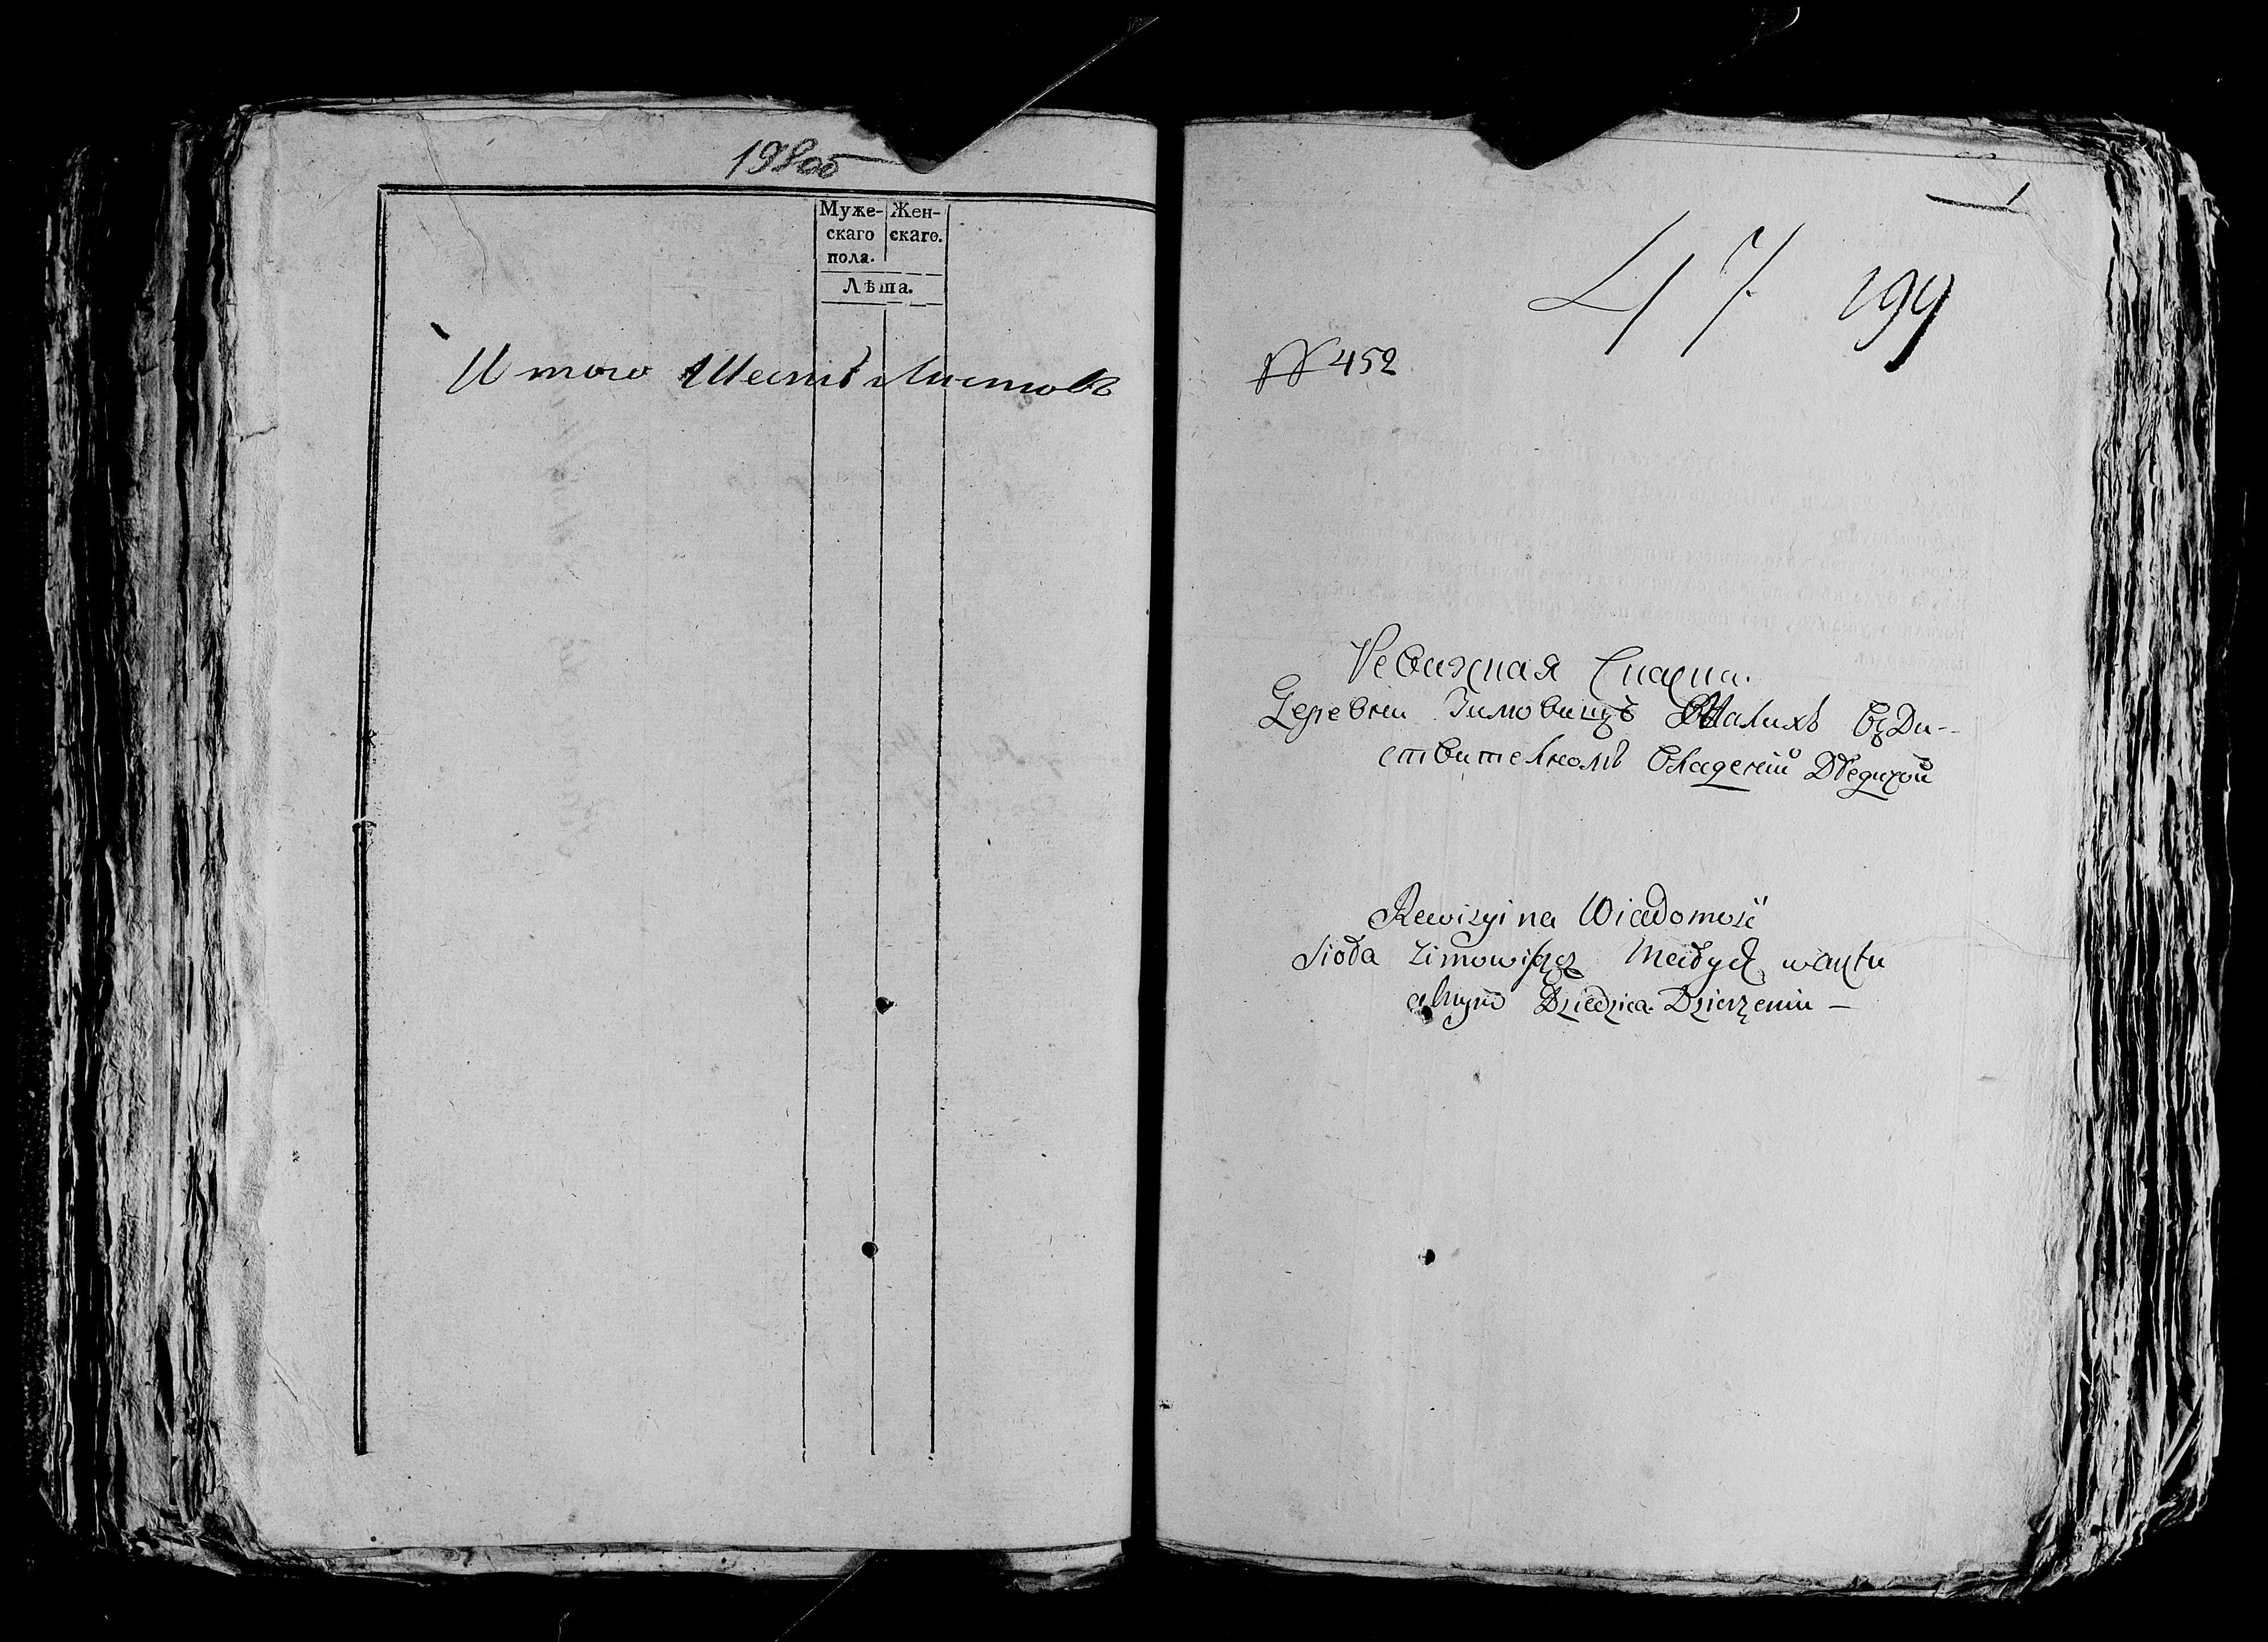 198об
Муже- Жен-
скаго скаго.
пола.
Лѣта.
Итого Шесть Листовъ
1
47 199
№ 452
Ревизкая Сказка.
Деревни Зимовищъ Малихъ въ Ди--
ствителномъ Владении Дѣдизои
Rewizyina Wiadomość
Sioła Zimowiszcz Małych w aktu
alnym Dziedzica Dzierzeniu —